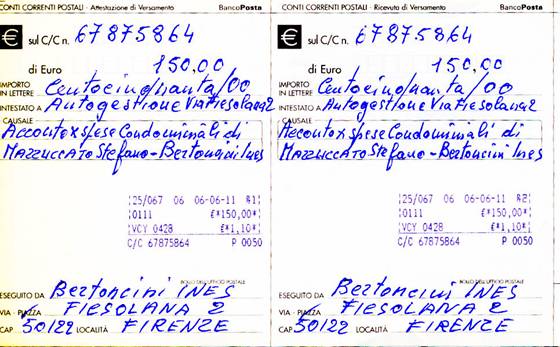 CONTI CORRENTI POSTALI - Attestazione di Versamento BancoPosta
€ sul C/C n. 67875864
di Euro 150,00
IMPORTO IN LETTERE Centocinquanta/00
INTESTATO A Autogestione Via Fiesolana 2
CAUSALE
Acconto x spese Condominiali di
MAZZUCCATO Stefano - Bertoncini Ines
25/067 06 06-06-11 R1
0111 €*150,00*
VCY 0428 €*1,10*
C/C 67875864 P 0050
BOLLO DELL'UFFICIO POSTALE
ESEGUITO DA Bertoncini INES
VIA - PIAZZA FIESOLANA 2
CAP 50122 LOCALITÀ FIRENZE
CONTI CORRENTI POSTALI - Ricevuta di Versamento BancoPosta
€ sul C/C n. 67875864
di Euro 150,00
IMPORTO IN LETTERE Centocinquanta/00
INTESTATO A Autogestione Via Fiesolana 2
CAUSALE
Acconto x spese Condominiali di
MAZZUCCATO Stefano - Bertoncini Ines
25/067 06 06-06-11 R2
0111 €*150,00*
VCY 0428 €*1,10*
C/C 67875864 P 0050
BOLLO DELL'UFFICIO POSTALE
ESEGUITO DA Bertoncini INES
VIA - PIAZZA FIESOLANA 2
CAP 50122 LOCALITÀ FIRENZE